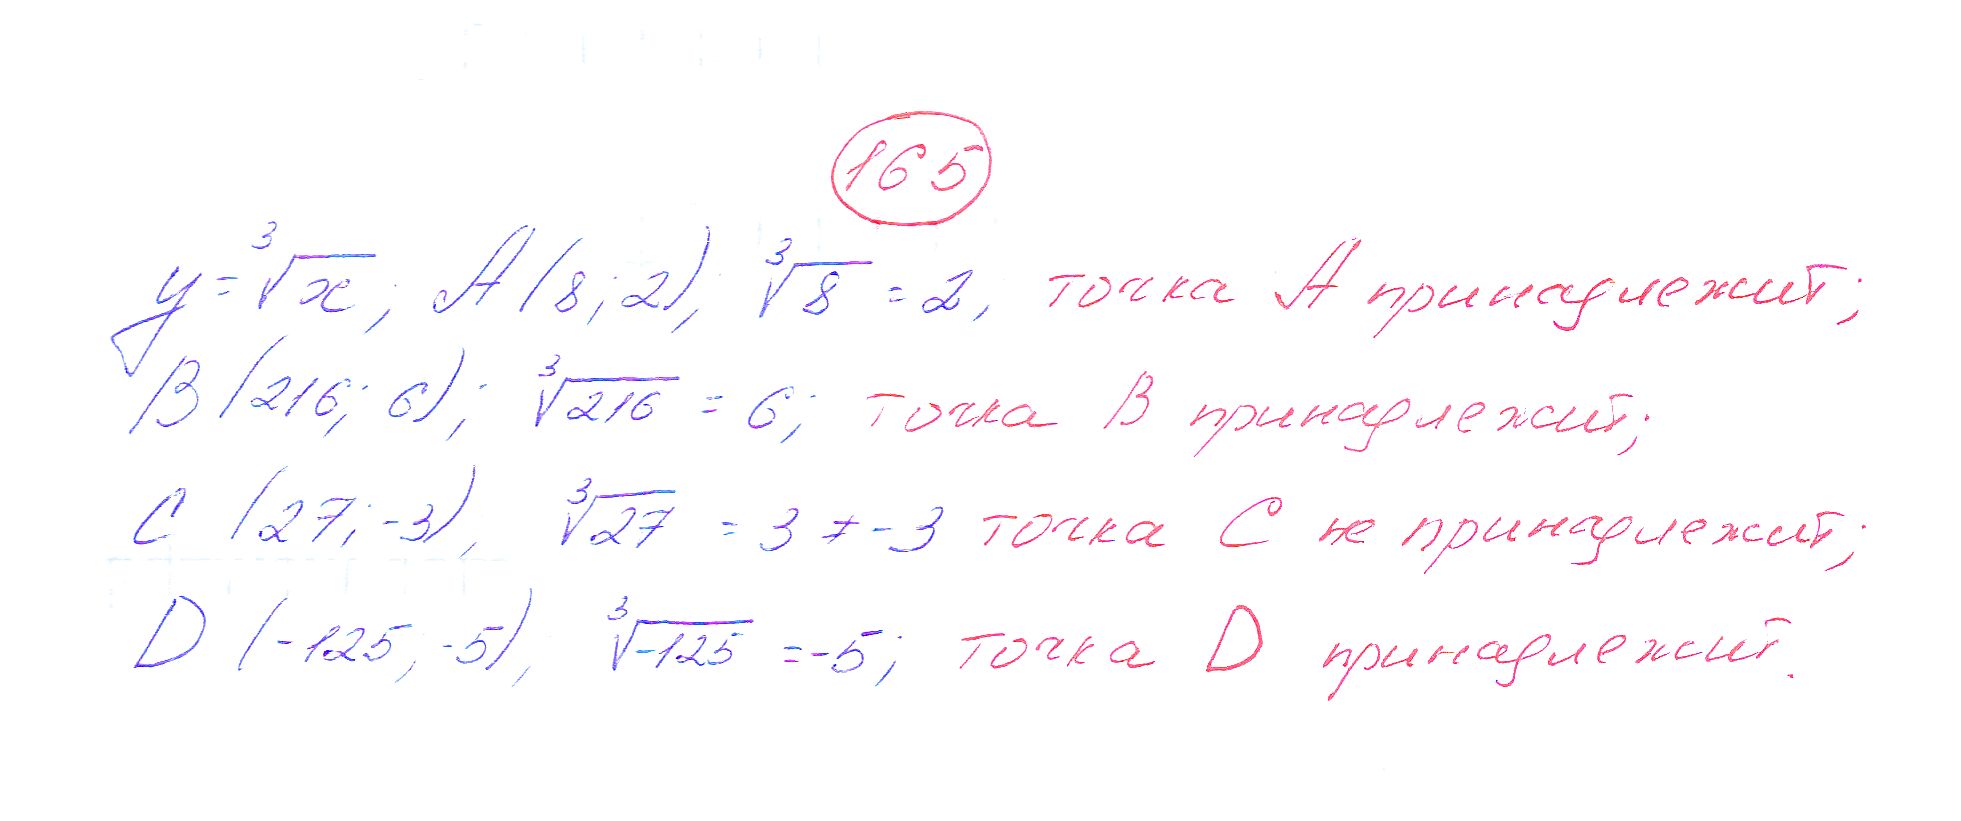 165
y = ∛x; A (8; 2); ∛8 = 2, точка A принадлежит;
B (216; 6); ∛216 = 6; точка B принадлежит;
C (27; -3), ∛27 = 3 ≠ -3 точка C не принадлежит;
D (-125; -5), ∛-125 = -5; точка D принадлежит.